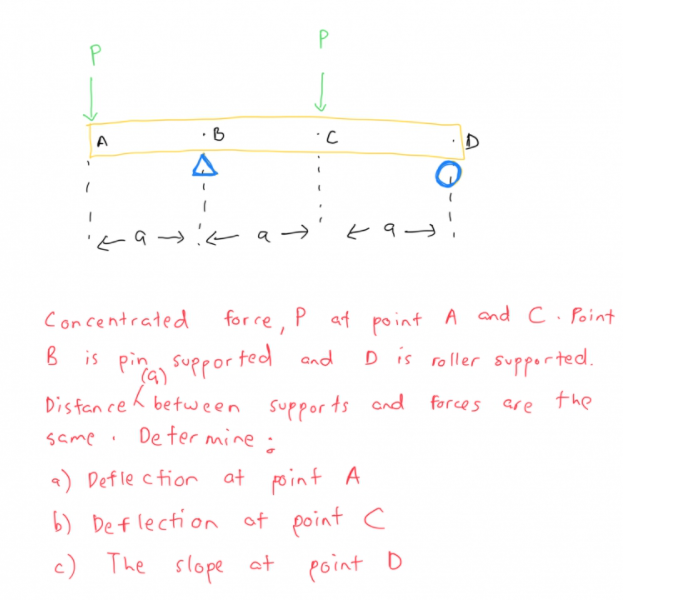 P
P
A
B
C
D
a
a
a
Concentrated force, P at point A and C. Point
B is pin supported and D is roller supported.
(a)
Distance between supports and forces are the
same. Determine:
a) Deflection at point A
b) Deflection at point C
c) The slope at point D